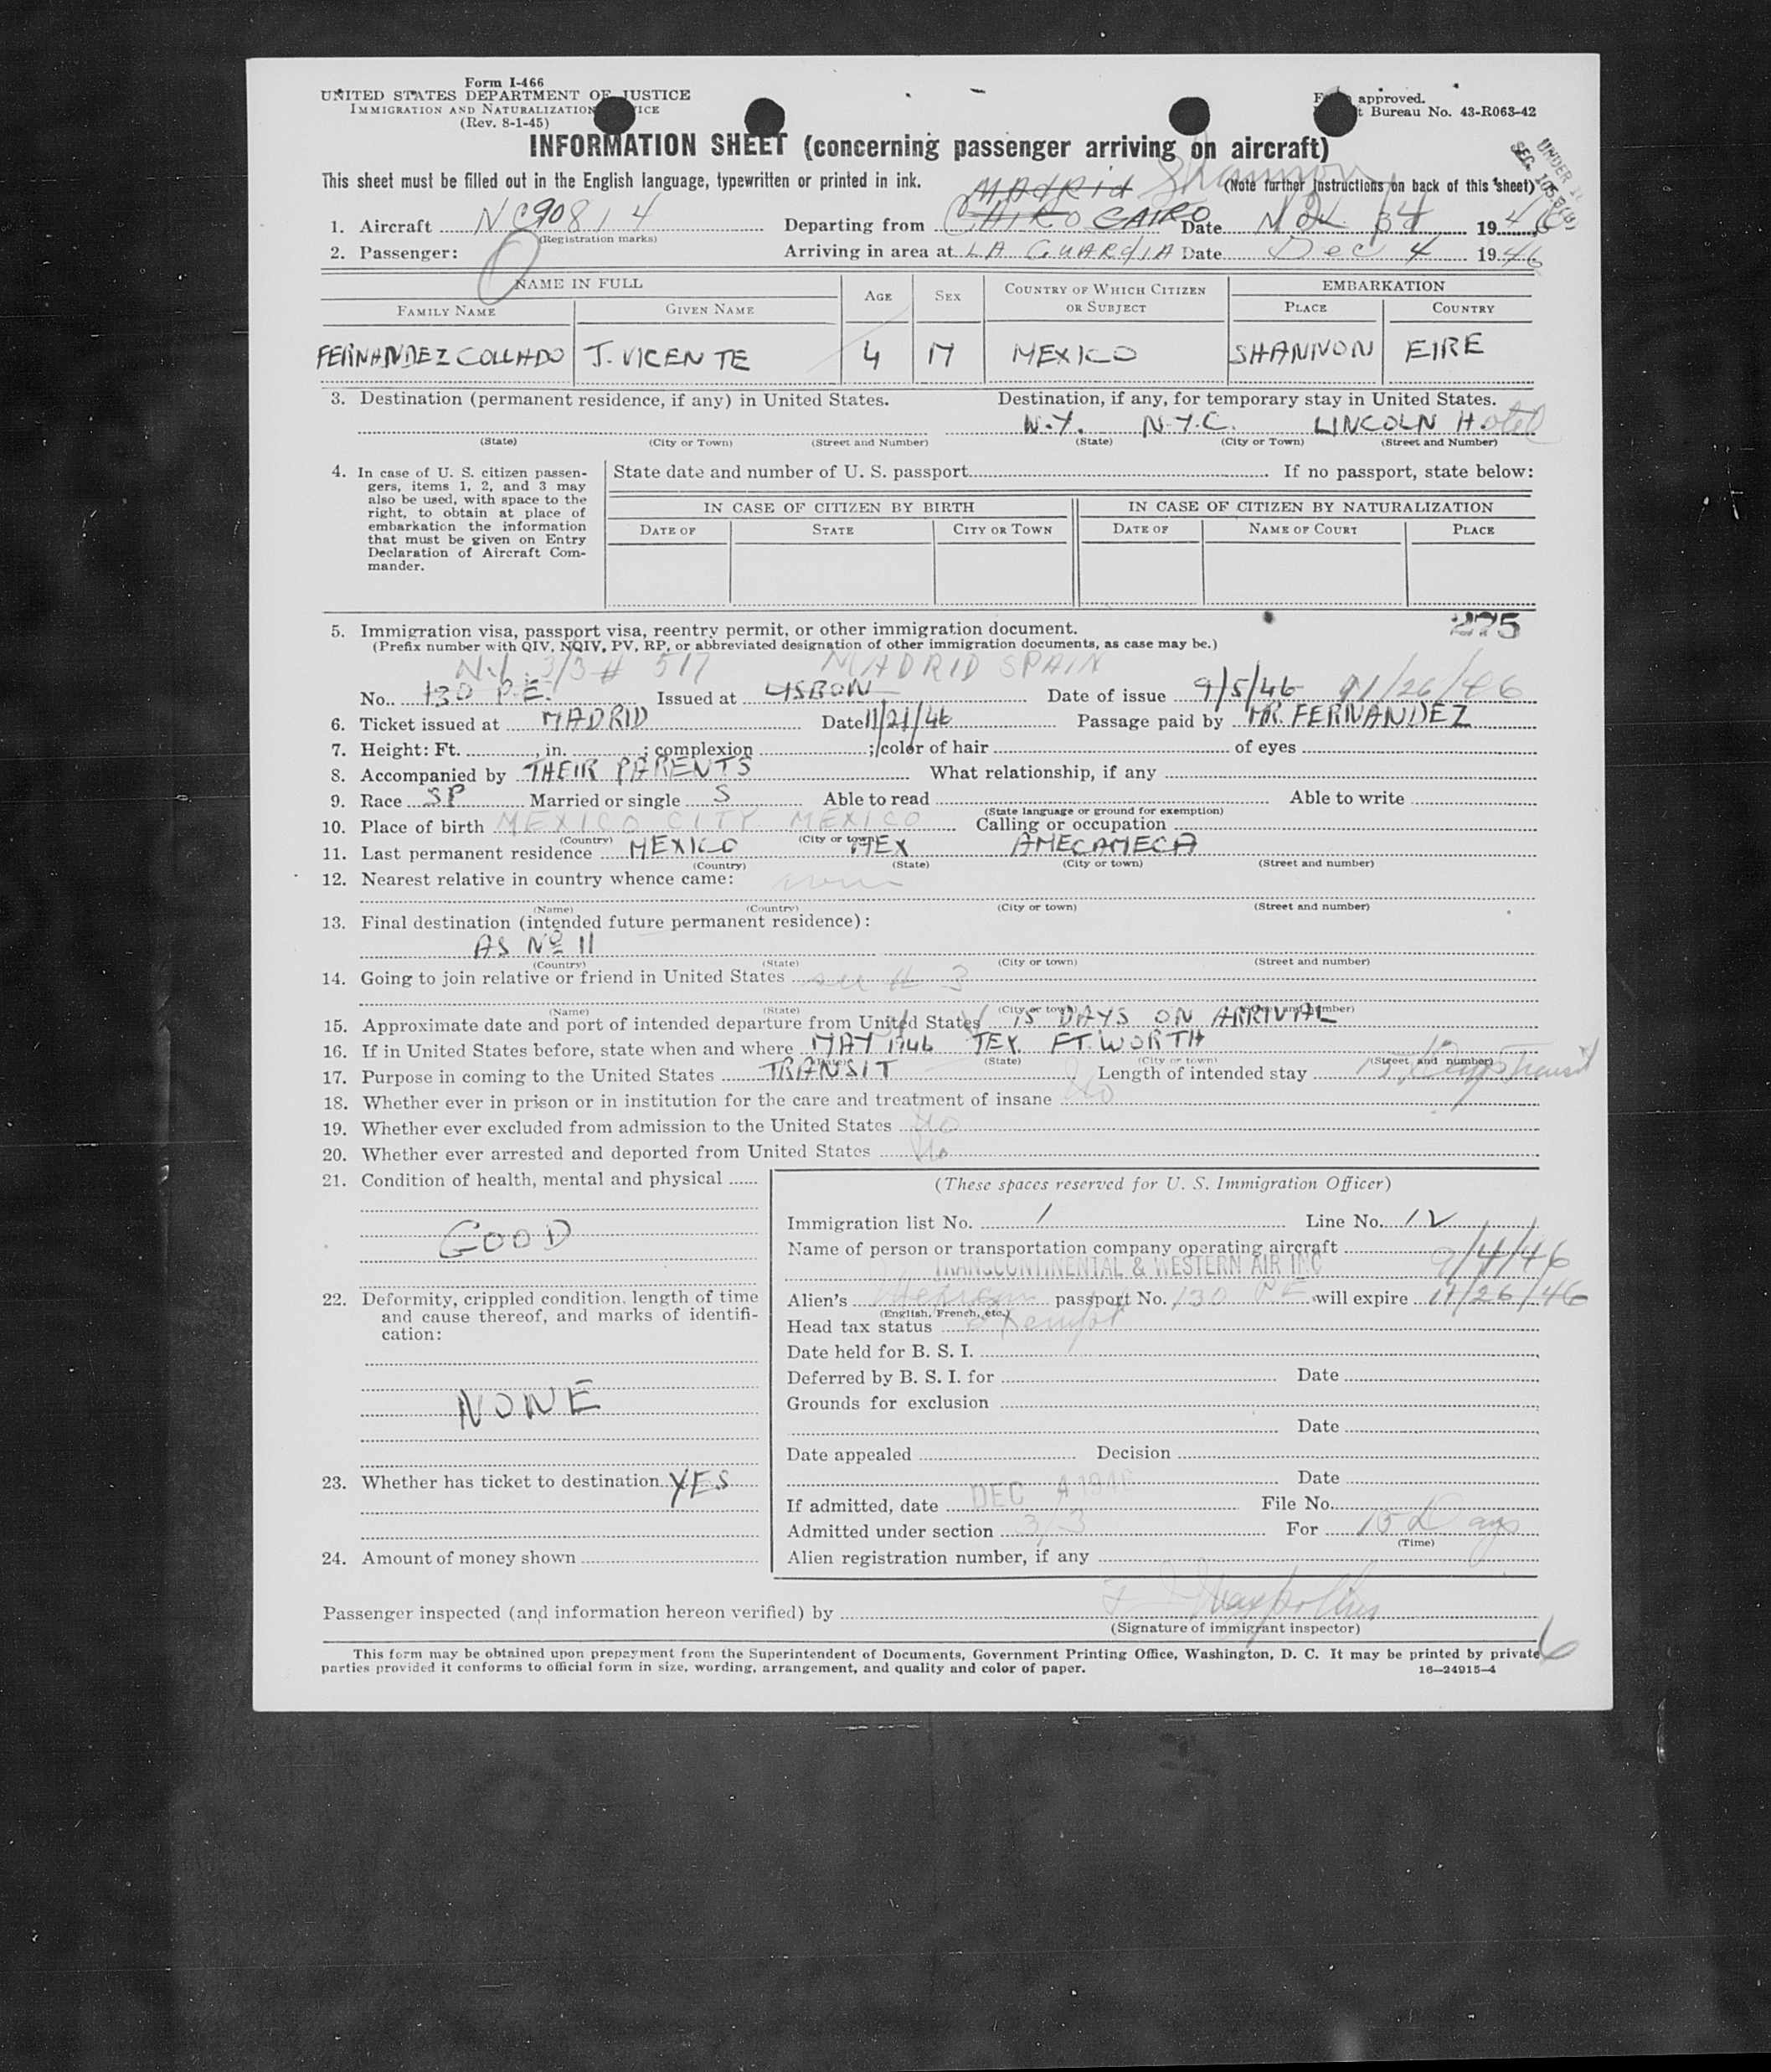 Form I-466
UNITED STATES DEPARTMENT OF JUSTICE
IMMIGRATION AND NATURALIZATION
(Rev. 8-1-45)
approved.
Bureau No. 43-R063-42
INFORMATION SHEET (concerning passenger arriving on aircraft)
UNDER
SEC.
This sheet must be filled out in the English language, typewritten or printed in ink. Madrid Shannon (Note further instructions on back of this sheet)
1. Aircraft NC90814 Departing from CAIRO CAIRO Date 19 46
(Registration marks)
2. Passenger: Arriving in area at LA GUARDIA Date Dec 4 19 46
NAME IN FULL AGE SEX COUNTRY OF WHICH CITIZEN OR SUBJECT EMBARKATION
FAMILY NAME GIVEN NAME PLACE COUNTRY
FERNANDEZ COLLADO J. VICENTE 4 M MEXICO SHANNON EIRE
3. Destination (permanent residence, if any) in United States. Destination, if any, for temporary stay in United States.
N.Y. N.Y.C. LINCOLN Hotel
(State) (City or Town) (Street and Number) (State) (City or Town) (Street and Number)
4. In case of U. S. citizen passen-
gers, items 1, 2, and 3 may
also be used, with space to the
right, to obtain at place of
embarkation the information
that must be given on Entry
Declaration of Aircraft Com-
mander.
State date and number of U. S. passport If no passport, state below:
IN CASE OF CITIZEN BY BIRTH IN CASE OF CITIZEN BY NATURALIZATION
DATE OF STATE CITY OR TOWN DATE OF NAME OF COURT PLACE
275
5. Immigration visa, passport visa, reentry permit, or other immigration document.
(Prefix number with QIV, NQIV, PV, RP, or abbreviated designation of other immigration documents, as case may be.)
3/3 # 517 MADRID SPAIN
No. 130 P.E. Issued at LISBON Date of issue 9/5/46 11/26/46
6. Ticket issued at MADRID Date 11/21/46 Passage paid by MR. FERNANDEZ
7. Height: Ft. , in. ; complexion ; color of hair of eyes
8. Accompanied by THEIR PARENTS What relationship, if any
9. Race SP Married or single S Able to read Able to write
(State language or ground for exemption)
10. Place of birth MEXICO CITY MEXICO Calling or occupation
(Country) (City or town)
11. Last permanent residence MEXICO MEX AMECAMECA
(Country) (State) (City or town) (Street and number)
12. Nearest relative in country whence came:
(Name) (Country) (City or town) (Street and number)
13. Final destination (intended future permanent residence):
AS Nº 11
(Country) (State) (City or town) (Street and number)
14. Going to join relative or friend in United States see # 3
(Name) (State) (City or town) (Street and number)
15. Approximate date and port of intended departure from United States 15 DAYS ON ARRIVAL
16. If in United States before, state when and where MAY 1946 TEX. FT. WORTH
(State) (City or town) (Street and number)
17. Purpose in coming to the United States TRANSIT Length of intended stay 15 Days Transit
18. Whether ever in prison or in institution for the care and treatment of insane No
19. Whether ever excluded from admission to the United States No
20. Whether ever arrested and deported from United States No
21. Condition of health, mental and physical
GOOD
22. Deformity, crippled condition, length of time
and cause thereof, and marks of identifi-
cation:
NONE
23. Whether has ticket to destination YES
24. Amount of money shown
(These spaces reserved for U. S. Immigration Officer)
Immigration list No. 1 Line No. 12
Name of person or transportation company operating aircraft
TRANSCONTINENTAL & WESTERN AIR INC 9/4/46
Alien's Mexican passport No. 130 PE will expire 11/26/46
(English, French, etc.)
Head tax status exempt
Date held for B. S. I.
Deferred by B. S. I. for Date
Grounds for exclusion
Date
Date appealed Decision
Date
If admitted, date DEC 4 1946 File No.
Admitted under section 3/3 For 15 Days
(Time)
Alien registration number, if any
Passenger inspected (and information hereon verified) by
(Signature of immigrant inspector)
6
This form may be obtained upon prepayment from the Superintendent of Documents, Government Printing Office, Washington, D. C. It may be printed by private
parties provided it conforms to official form in size, wording, arrangement, and quality and color of paper. 16—24915-4